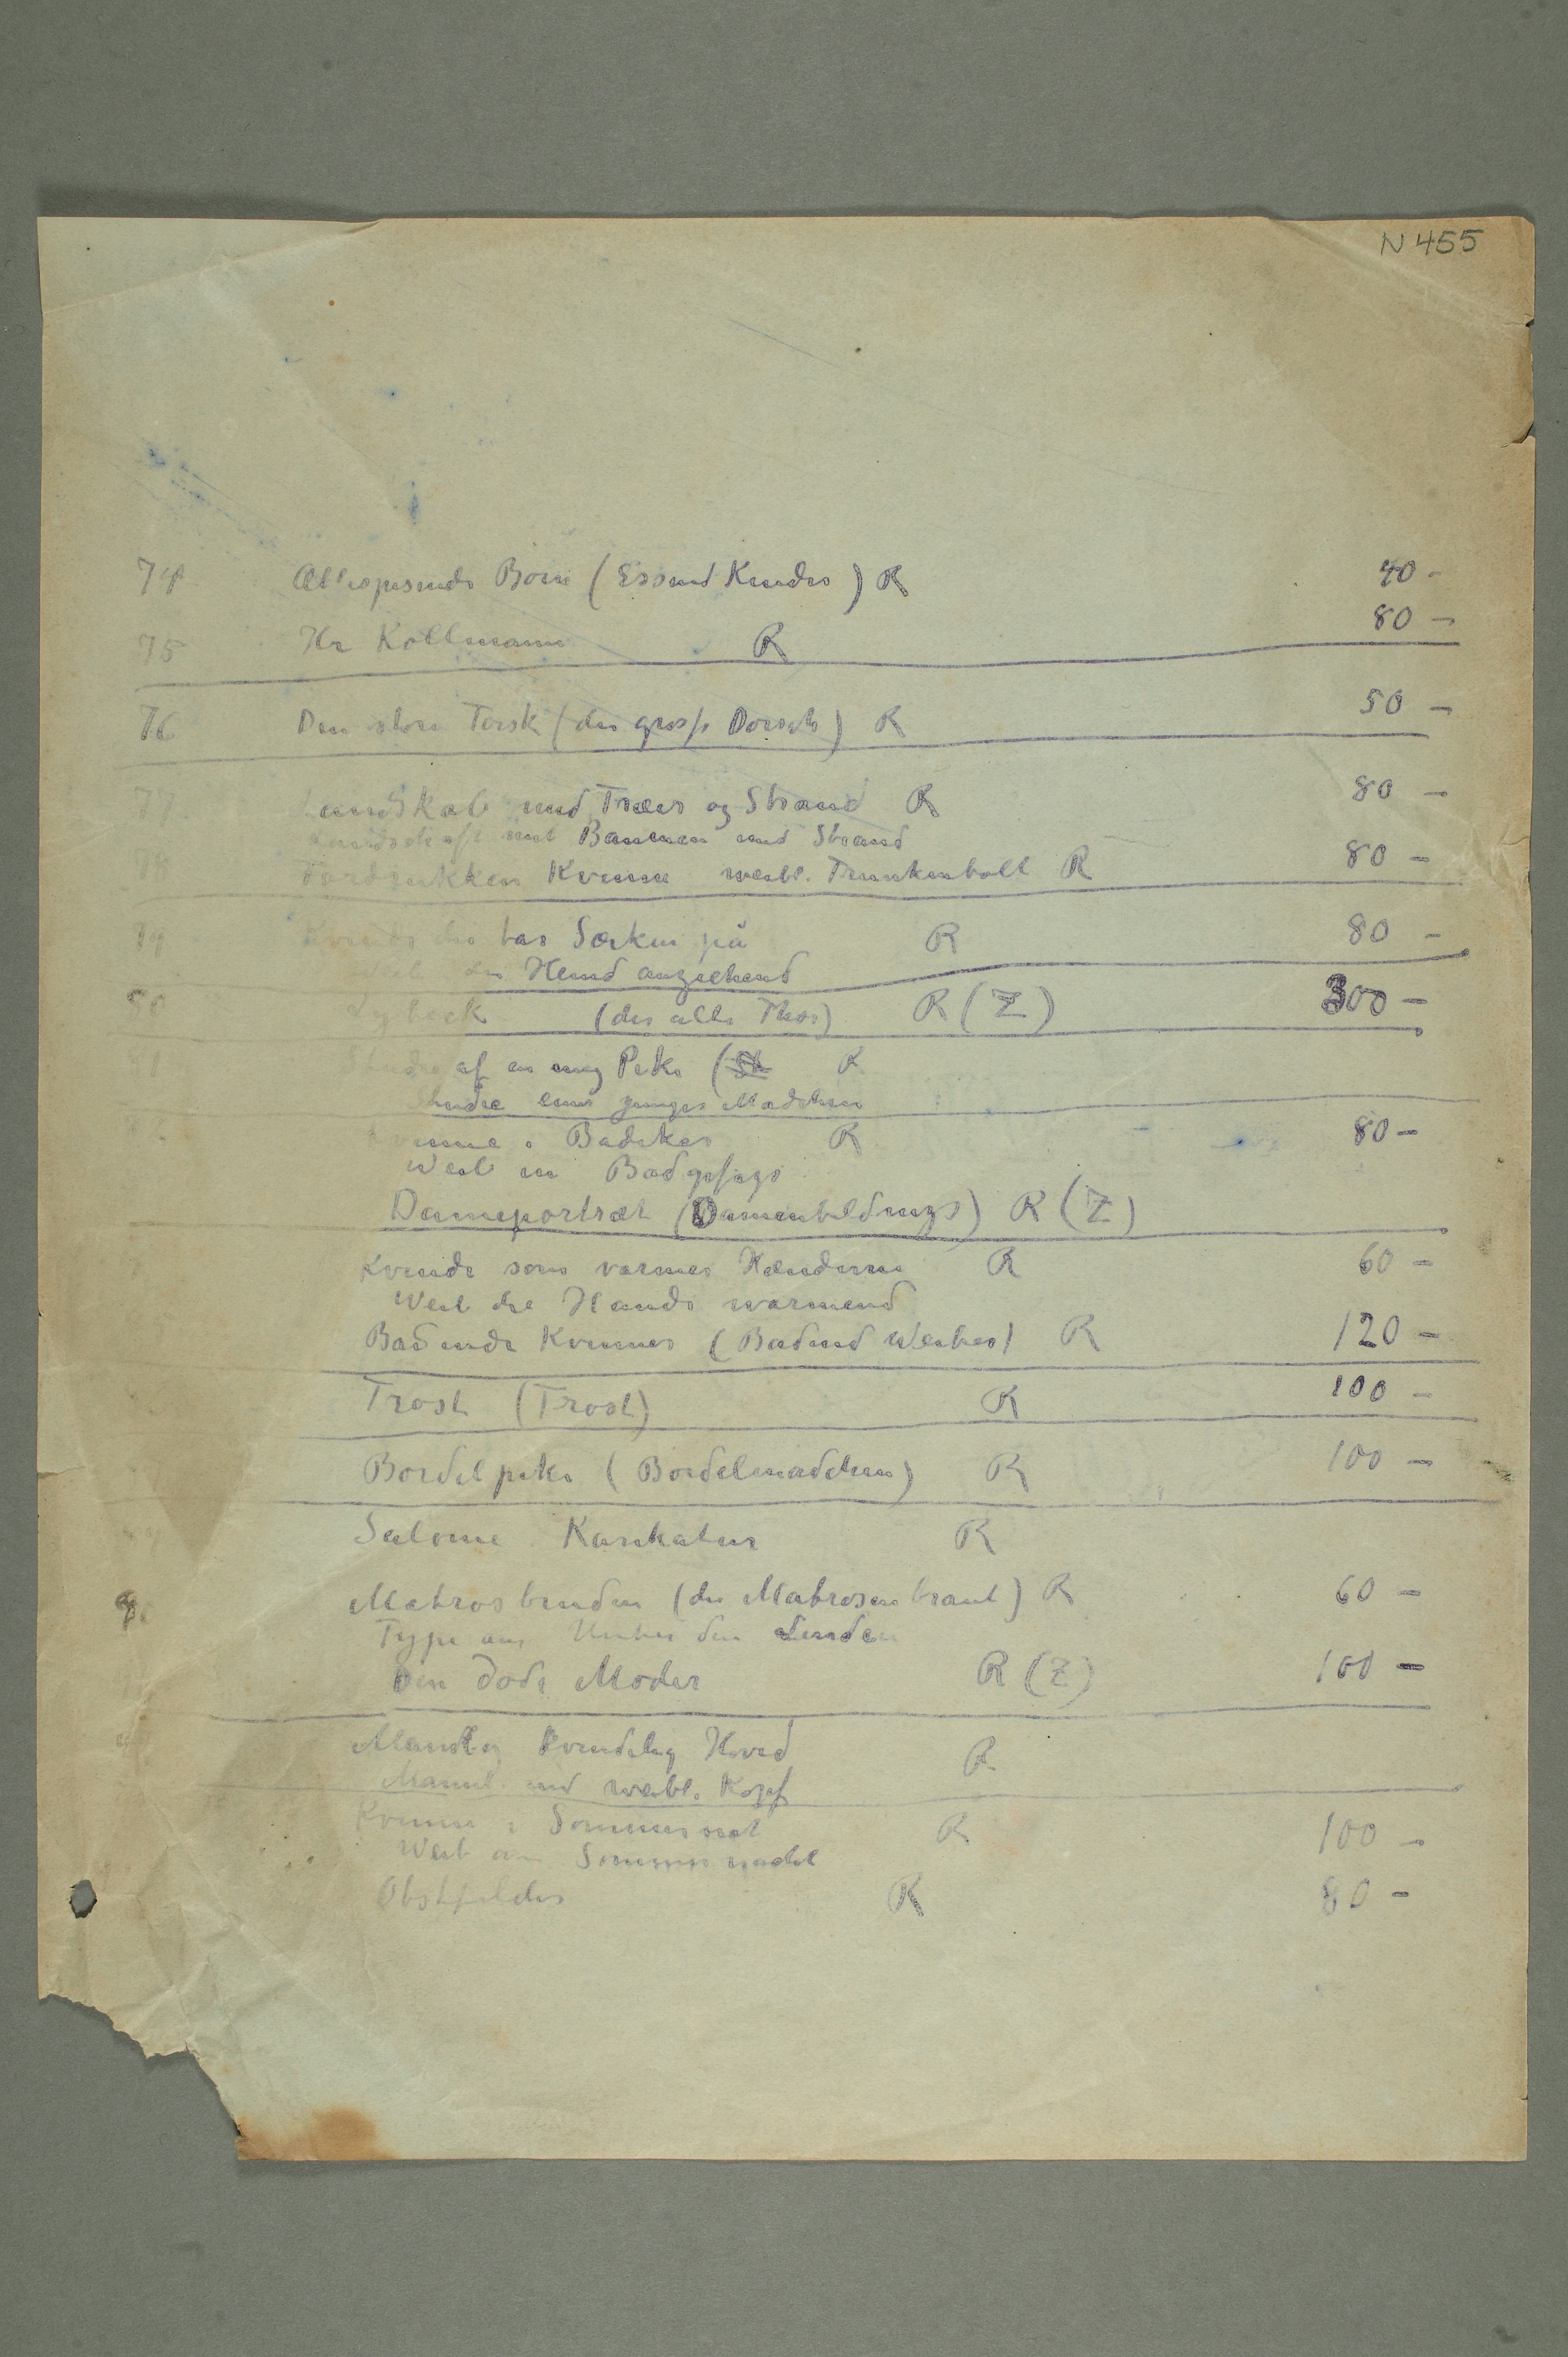 N 455
74 Æblespisende Børn (Essend Kinder) R 40 –
75 Hr Kollmann R 80 –
76 Den store Torsk (der grosse Dorsch) R 50 –
77 Landskab med Træer og Strand R 80 –
Landschaft mit Baumen und Strand
78 Fordrukken Kvinne weibl. Trunkenbolt R 80 –
79 Kvinde der tar Særken på R 80 –
Weib das Hemd anziehend
80 Lybeck (das alte Thor) R (Z) 300 –
Studie af en ung Pike (St R
Studie eines junges Madchen
Kvinne i Badekar R 80 –
Weib im Bad
Dameportræt (Damenbildungs) R (Z)
Kvinde som varmer Hænderne R 60 –
Weib die Hande warmend
Badende Kvinner (Badend Weiber) R 120 –
Trøst (Trost) R 100 –
Bordelpike (Bordelmadchen) R 100 –
Salome Karikatur R
Matrosbruden (die Matrosenbraut) R 60 –
Type aus Unter den Linden
Den døde Moder R (Z) 100 –
Mandlig Kvindelig Hoved R
Mannl. und weibl. Kopf
Kvinne i Sommernat R 100 –
Weib am Sommernacht
Obstfelder R 80 –